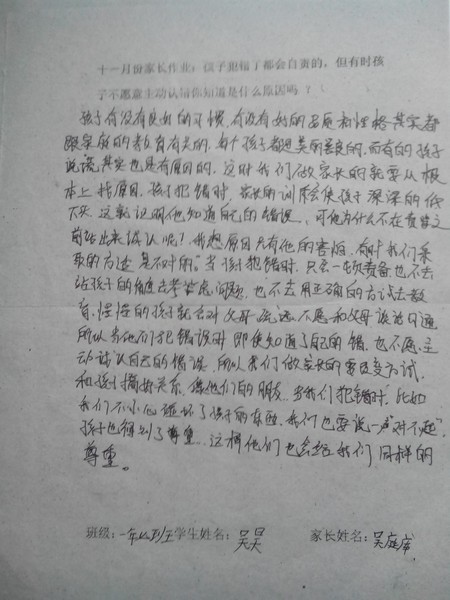 十一月份家长作业：孩子犯错了都会自责的，但有时孩
子不愿意主动认错你知道是什么原因吗？
孩子有没有良好的习惯，有没有好的品质和性格其实都
跟家庭的教育有关的。每个孩子都是美的善良的，而有的孩子
说谎其实也是有原因的，这时我们做家长的就要从根
本上找原因。孩子犯错时，家长的训斥会使孩子深深的低
下头 这就说明他知道自己的错误，可他为什么不在责骂之
前站出来承认呢！我想原因只有他的害怕，有时我们采
取的方法是不对的。当孩子犯错时，只会一顿责备也不去
站孩子的角度去考虑问题，也不去用正确的方式去教
育，性性的孩子就会对父母疏远不愿和父母谈话沟通
所以当他们犯错误时 即使知道了自己的错，也不愿主
动承认自己的错误，所以我们做家长的要改变方式，
和孩子搞好关系，像他们的朋友，当我们犯错时，比如
我们不小心碰坏了孩子的东西，我们也要说一声“对不起”，
孩子也得到了尊重，这样他们也会给我们同样的
尊重。
班级：一年级班 学生姓名：吴昊 家长姓名：吴庭